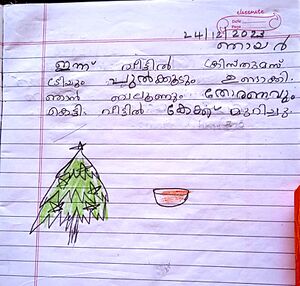 classmate
Date
Page
24/12/2023
ഞായർ
ഇന്ന് വീട്ടിൽ ക്രിസ്തുമസ്
ട്രീയും പുൽക്കൂടും ഉണ്ടാക്കി.
ഞാൻ ബലൂണും തോരണവും
കെട്ടി. വീട്ടിൽ കേക്ക് മുറിച്ചു.